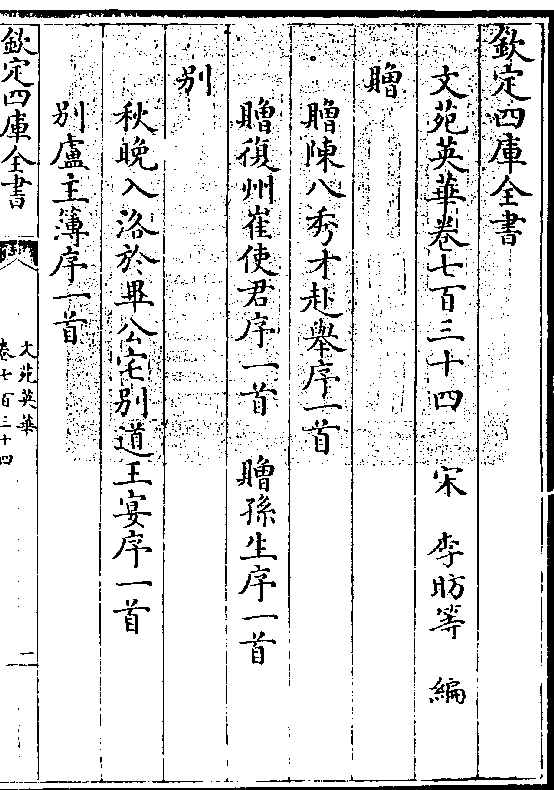 欽定四庫全書
文苑英華卷七百三十四　宋　李昉等　編
贈
贈陳八秀才赴舉序一首
贈復州崔使君序一首　贈孫生序一首
别
秋晚入洛於畢公宅别道王宴序一首
别盧主簿序一首
欽定四庫全書
文苑英華
卷七百三十四
二